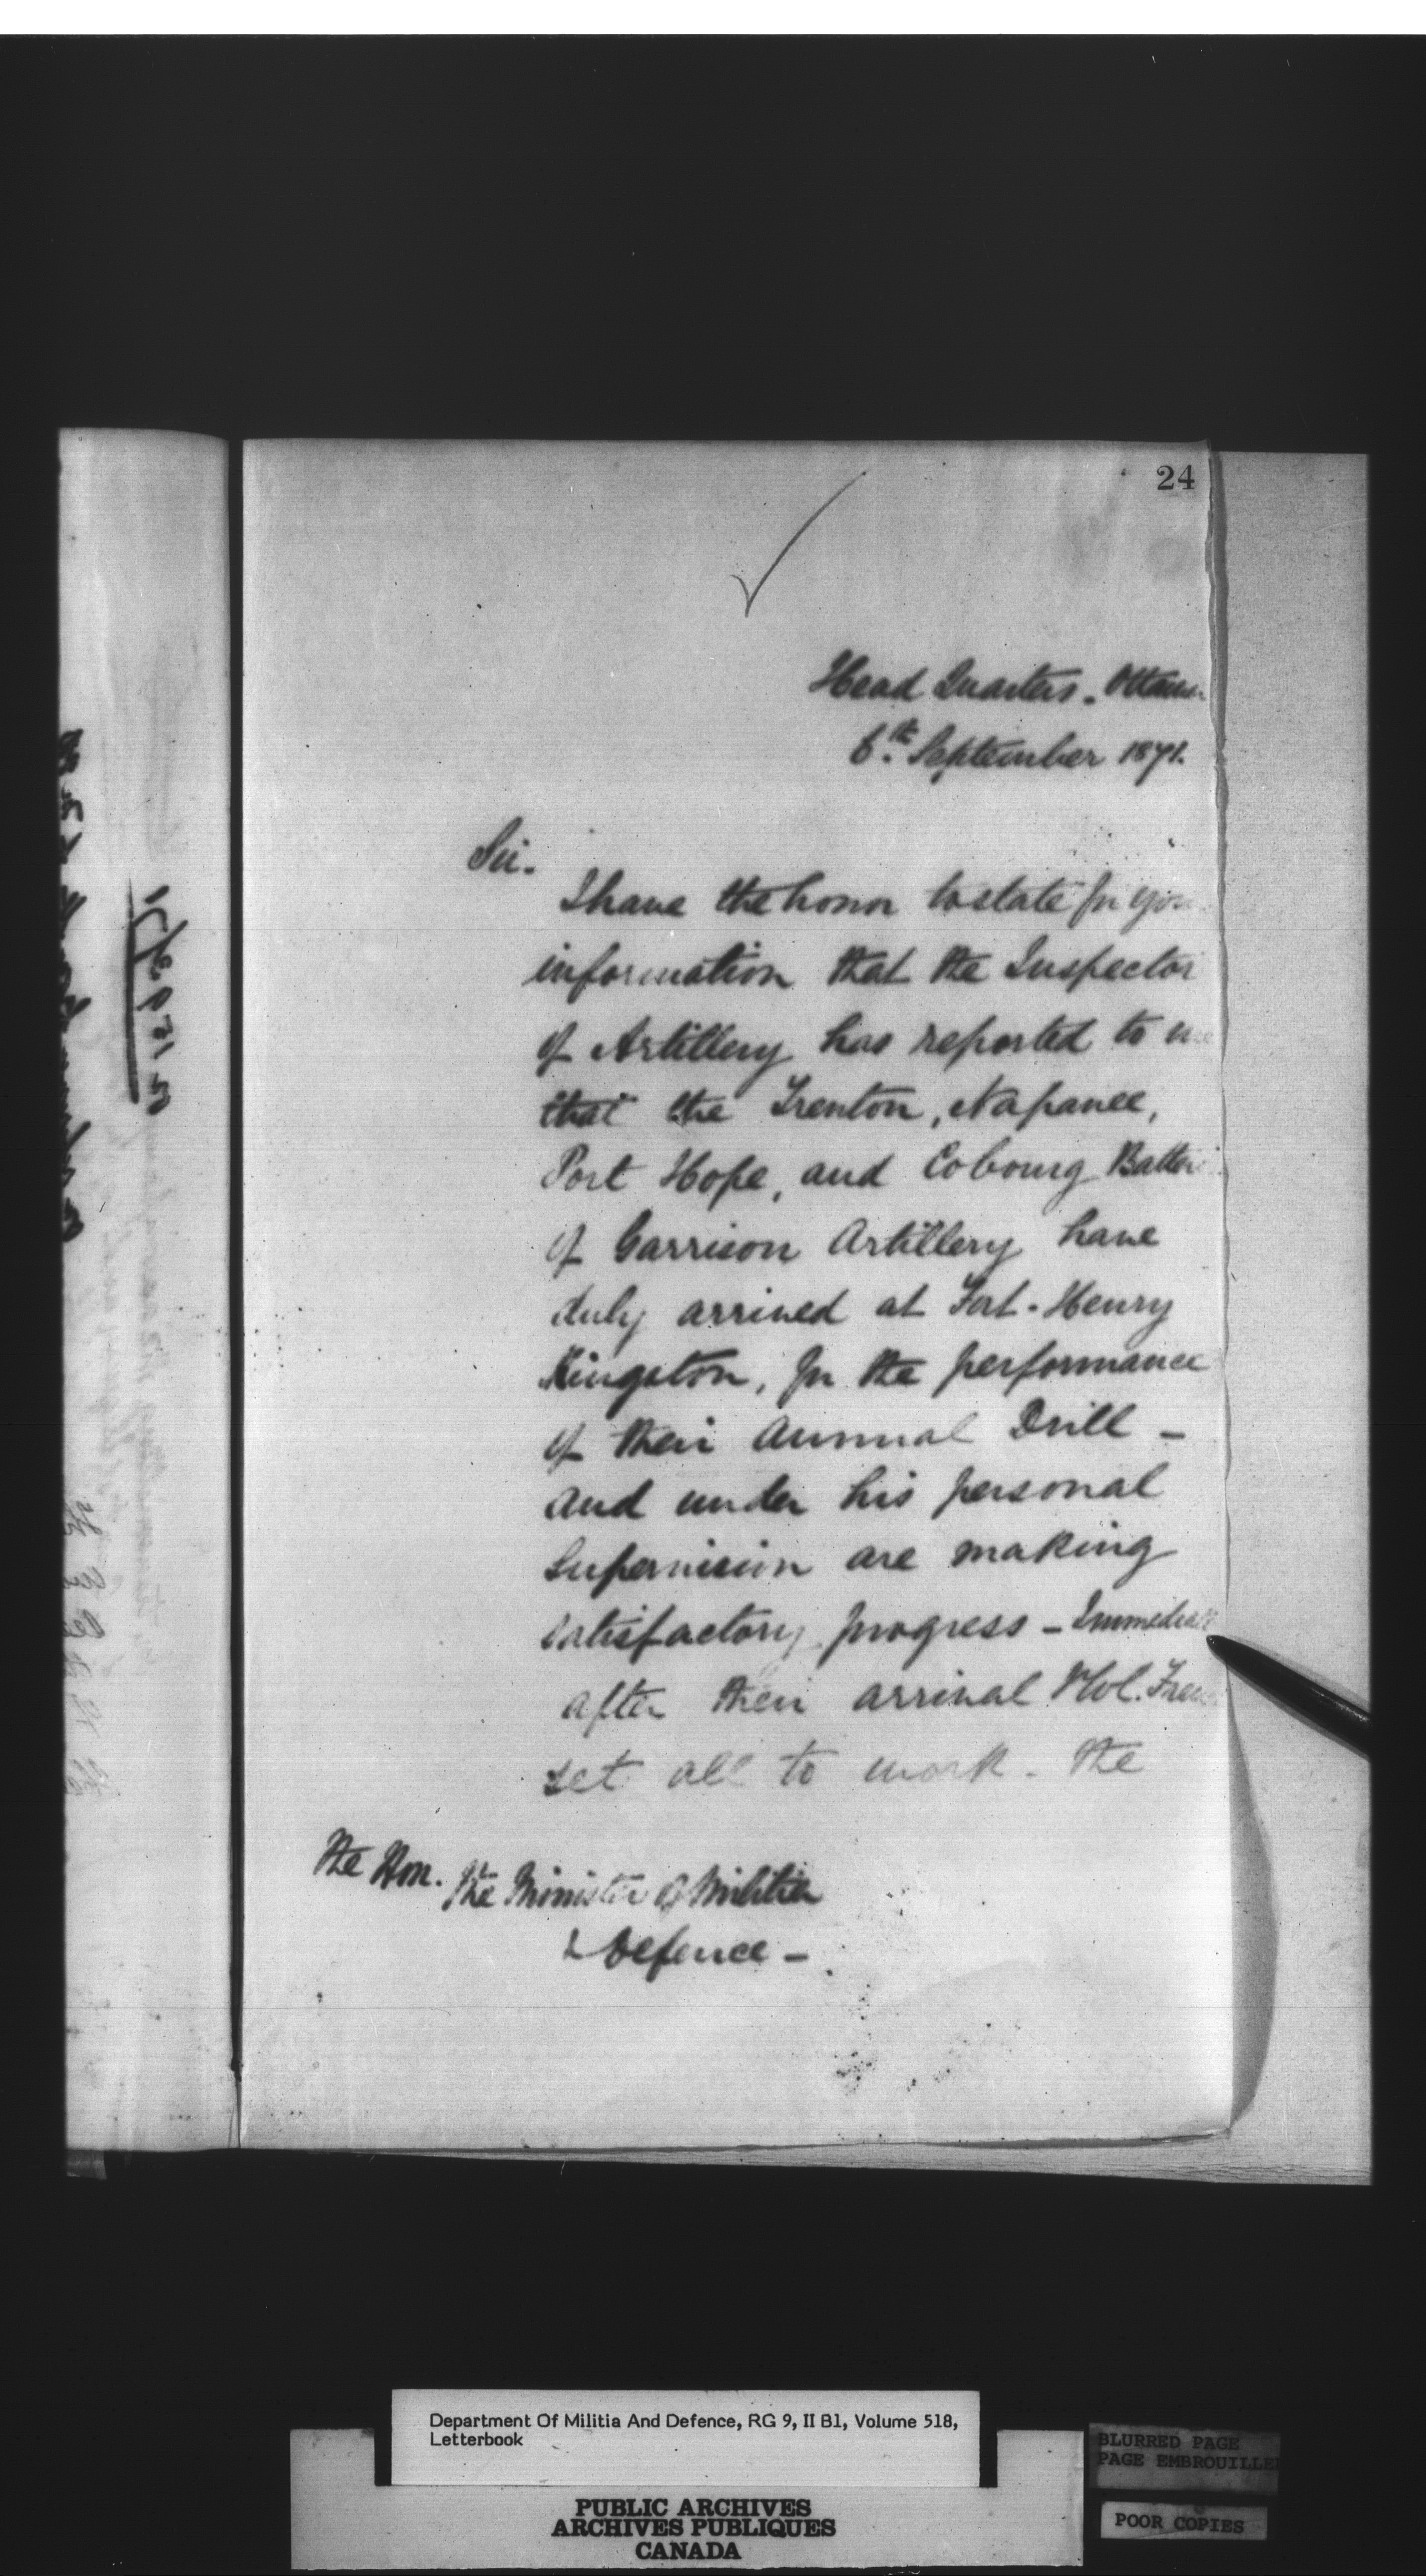 24
Head Quarters. Ottawa
6th September 1871.
Sir.
I have the honor to state for your
information that the Inspector
of Artillery has reported to me
that the Trenton, Napanee,
Port Hope, and Cobourg Batter
of Garrison Artillery have
duly arrived at Fort-Henry
Kingston, for the performance
of their Annual Drill -
and under his personal
Supervision are making
satisfactory progress - Immediat
after their arrival Col. Fren
set all to work. The
The Hon. The Minister of Militia
& Defence -
Department Of Militia And Defence, RG 9, II B1, Volume 518,
Letterbook
PUBLIC ARCHIVES
ARCHIVES PUBLIQUES
CANADA
BLURRED PAGE
PAGE EMBROUILLE
POOR COPIES